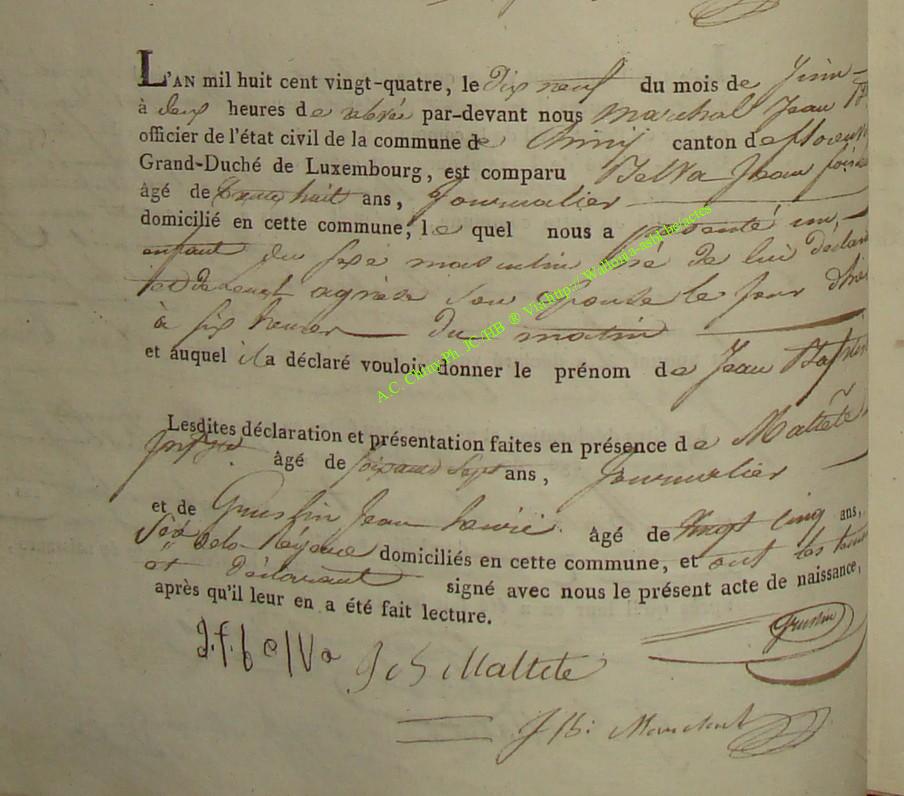 L'AN mil huit cent vingt-quatre, le dix neuf du mois de Juin
à deux heures de relevée par-devant nous Marchal Jean
officier de l'état civil de la commune de Chiny canton de floren
Grand-Duché de Luxembourg, est comparu Belva Jean
âgé de trente huit ans, Journalier
domicilié en cette commune, le quel nous a présenté un
enfant du sexe masculin né de lui déclarant
et de agnès son épouse le jour d'hier
à six heures du matin
et auquel il a déclaré vouloir donner le prénom de Jean Baptiste
Lesdites déclaration et présentation faites en présence de Maltête
âgé de soixante sept ans, Journalier
et de Grustin Jean âgé de Vingt cinq ans,
domiciliés en cette commune, et ont les
et déclarant signé avec nous le présent acte de naissance,
après qu'il leur en a été fait lecture.
Grustin
J. f. belva
J S Maltete
J B: Marchal
A.C. Chiny Ph. JC/HB ® Via http://Wallonia-asbl.be/actes